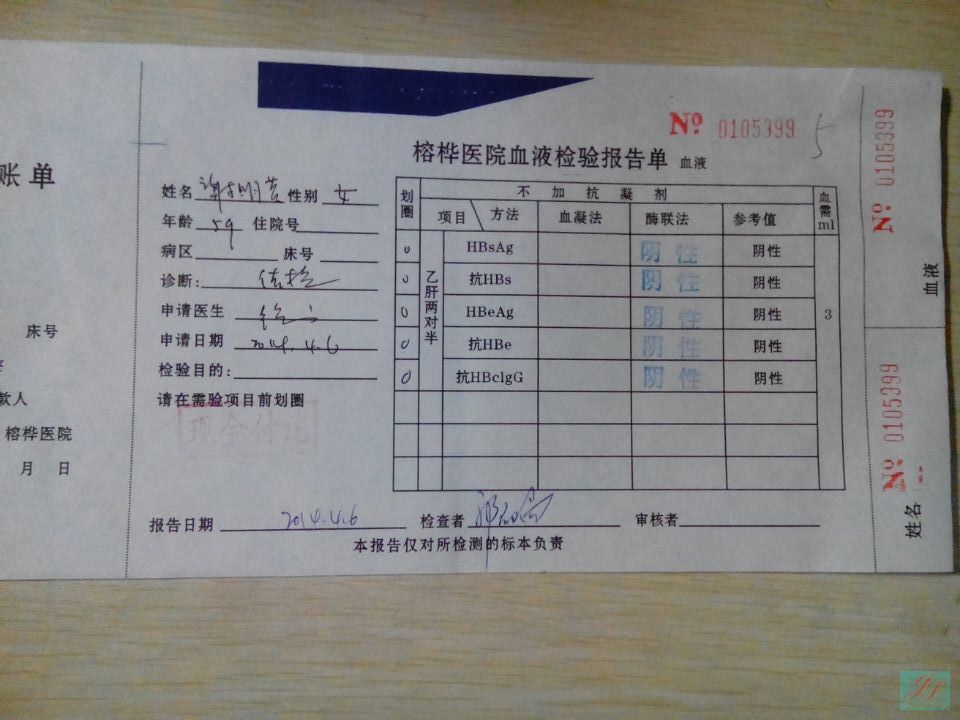 账单
床号
款人
榕桦医院
月 日
№ 0105399 5
榕桦医院血液检验报告单 血液
姓名 性别 女
年龄 59 住院号
病区 床号
诊断: 体检
申请医生
申请日期 2014.4.6
检验目的:
请在需验项目前划圈
现金付讫
划圈 不加抗凝剂 血需ml
项目 方法 血凝法 酶联法 参考值
乙肝两对半
0 HBsAg 阴性 阴性
0 抗HBs 阴性 阴性
0 HBeAg 阴性 阴性 3
0 抗HBe 阴性 阴性
0 抗HBclgG 阴性 阴性
报告日期 2014.4.6 检查者 审核者
本报告仅对所检测的标本负责
№ 0105399
血液
№ 0105399
姓名